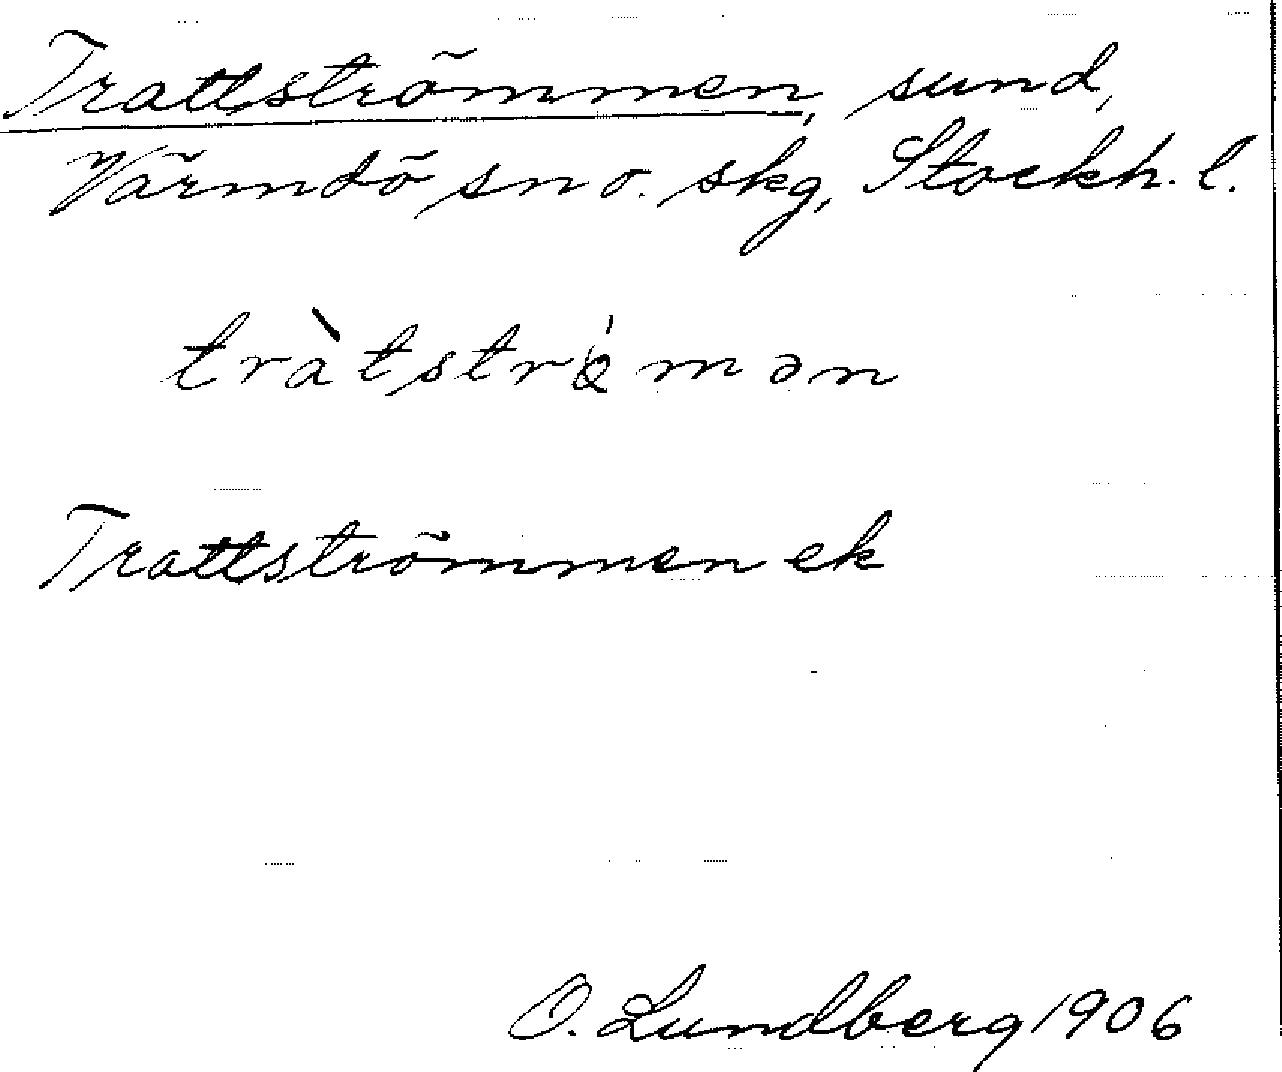 Trattströmmen, sund,
Värmdö sn o. skg, Stockh. l.
tràtströ́mən
Trattströmmen ek
O. Lundberg 1906